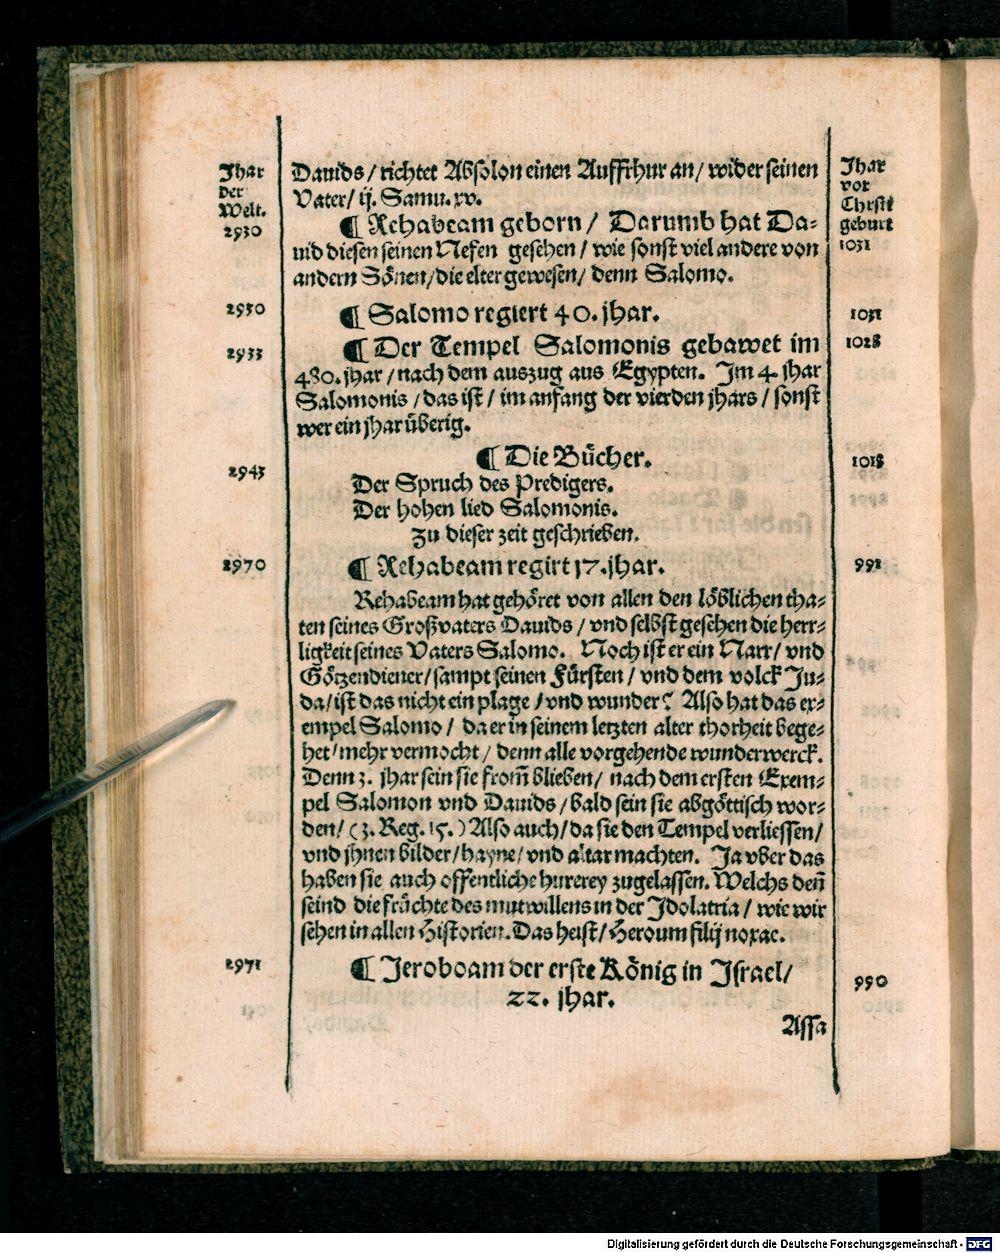 Jhar
der
Welt.
Dauids / richtet Absolon einen Auffrhur an / wider seinen
Vater / ij. Samu. xv.
Jhar
vor
Christi
geburt
2930
¶ Rehabeam geborn / Darumb hat Da-
uid diesen seinen Nefen gesehen / wie sonst viel andere von
andern Sönen / die elter gewesen / denn Salomo.
1031
2930
¶ Salomo regiert 40. jhar.
1031
2933
¶ Der Tempel Salomonis gebawet im
480. jhar / nach dem auszug aus Egypten. Im 4. jhar
Salomonis / das ist / im anfang der vierden jhars / sonst
wer ein jhar überig.
1028
2943
¶ Die Bücher.
Der Spruch des Predigers.
Der hohen lied Salomonis.
Zu dieser zeit geschrieben.
1018
2970
¶ Rehabeam regirt 17. jhar.
991
Rehabeam hat gehöret von allen den löblichen tha-
ten seines Großvaters Dauids / vnd selbst gesehen die herr-
ligkeit seines Vaters Salomo. Noch ist er ein Narr / vnd
Götzendiener / sampt seinen Fürsten / vnd dem volck Ju-
da / ist das nicht ein plage / vnd wunder? Also hat das ex-
empel Salomo / da er in seinem letzten alter thorheit bege-
het / mehr vermocht / denn alle vorgehende wunderwerck.
Denn 3. jhar sein sie from̃ blieben / nach dem ersten Exem-
pel Salomon vnd Dauids / bald sein sie abgöttisch wor-
den / (3. Reg. 15.) Also auch / da sie den Tempel verliessen /
vnd jhnen bilder / hayne / vnd altar machten. Ja vber das
haben sie auch offentliche hurerey zugelassen. Welchs deñ
seind die früchte des mutwillens in der Idolatria / wie wir
sehen in allen Historien. Das heist / Heroum filij noxae.
2971
¶ Jeroboam der erste König in Jsrael /
22. jhar.
990
Assa
Digitalisierung gefördert durch die Deutsche Forschungsgemeinschaft - DFG